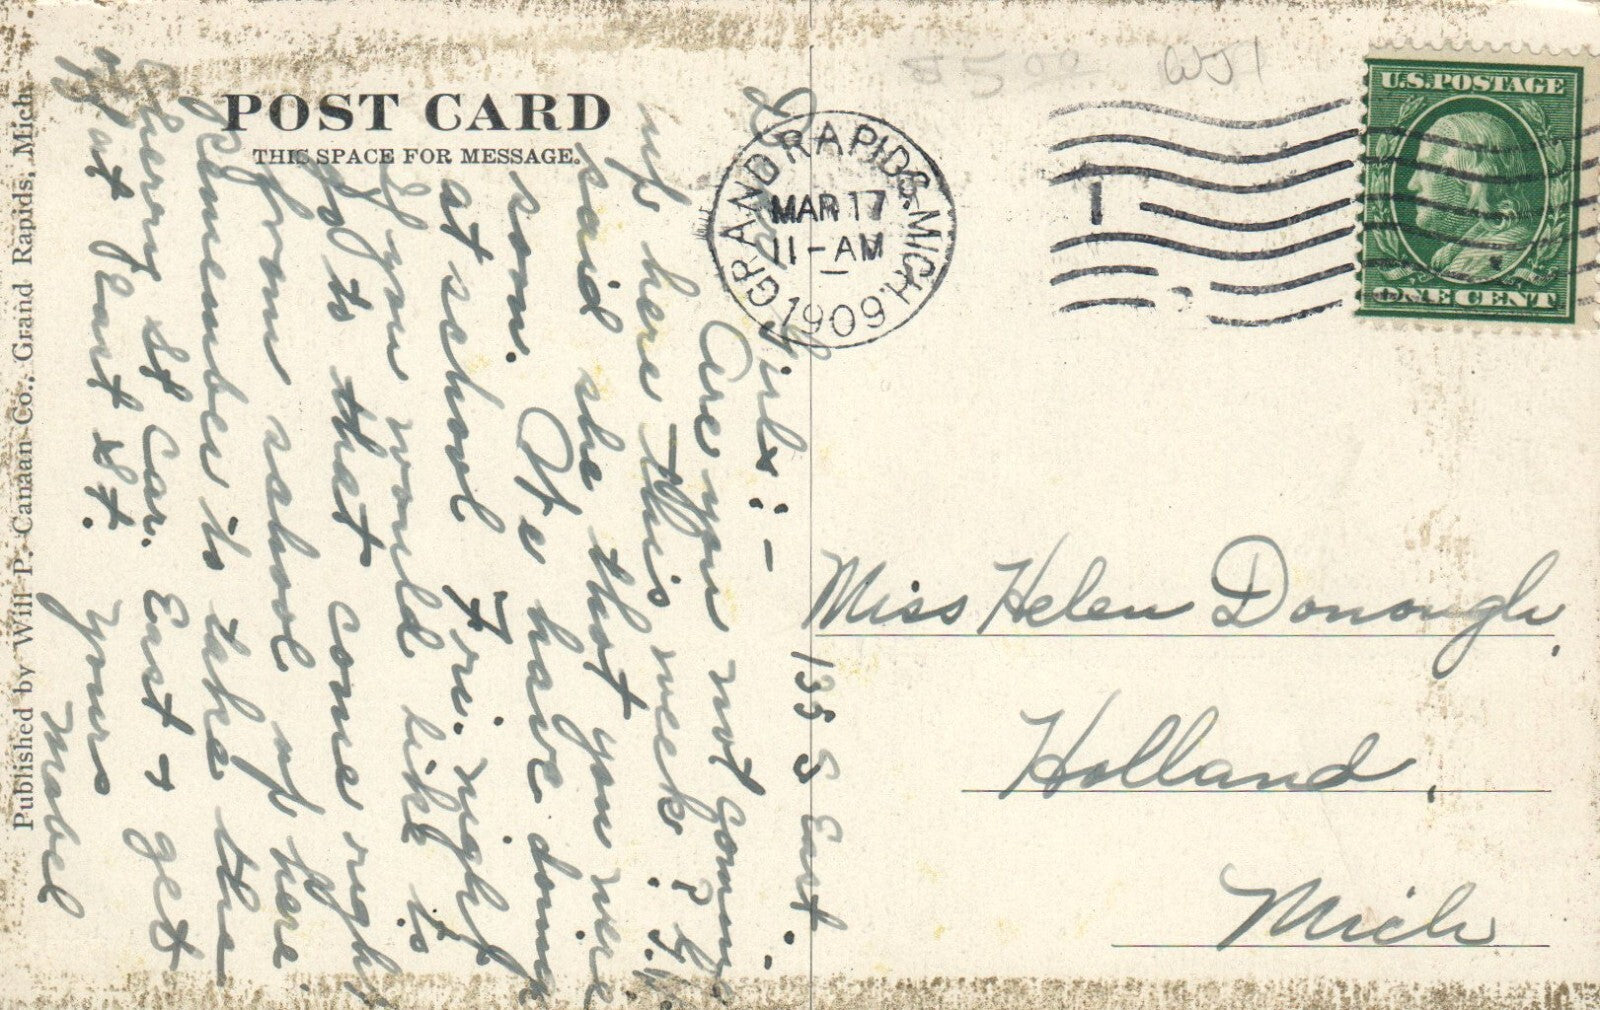 POST CARD
THIS SPACE FOR MESSAGE.
Published by Will P. Canaan Co., Grand Rapids, Mich.
GRAND RAPIDS. MICH.
MAR 17
11-AM
1909
1
U.S. POSTAGE
ONE CENT
Miss Helen Donough,
Holland,
Mich
135 S East.
Girls:-
Are you not coming
up here this week?
said she that you were
soon. We have doings
at school Fri. night
If you would like to
go to that come right
from school up here
Remember to take the
Cherry St Car. East & get
off at
Yours
Mabel